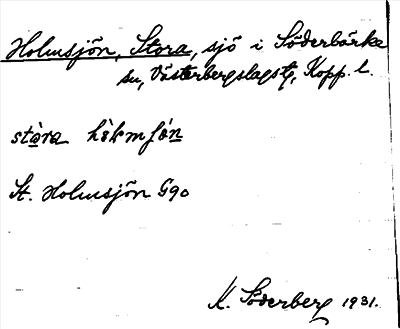 Holmsjön, Stora, sjö i Söderbärke
sn, Västerbergslags tg, Kopp. l.
stòra hòlmfön
St. Holmsjön G90
K. Söderberg 1931.